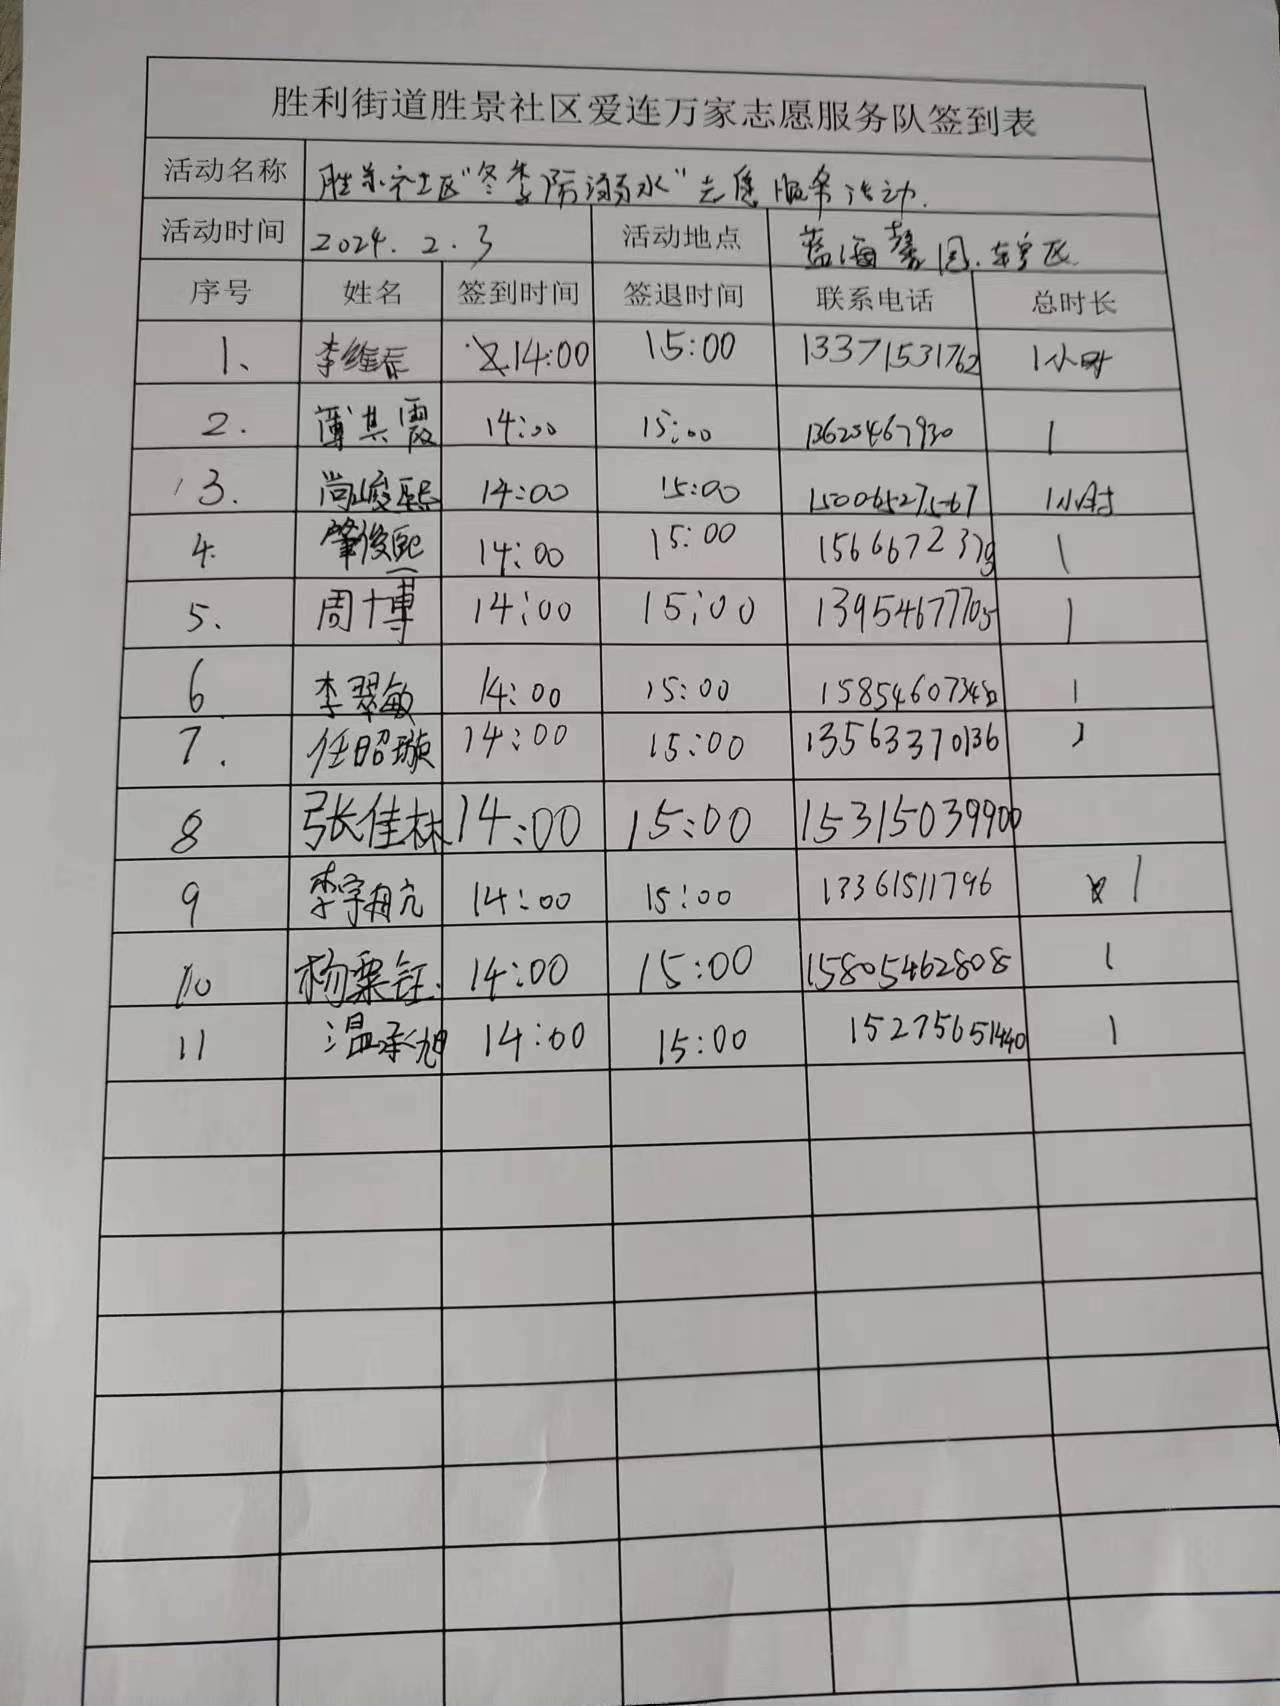 胜利街道胜景社区爱连万家志愿服务队签到表
活动名称 胜景社区"冬季防溺水"志愿服务活动.
活动时间 2024.2.3 活动地点 蓝海馨园.
序号 姓名 签到时间 签退时间 联系电话 总时长
1、 李维春 14:00 15:00 13371531762 1小时
2. 薄其霞 14:00 15:00 13625467930 1
3. 尚峻熙 14:00 15:00 15006527567 1小时
4. 肇俊熙 14:00 15:00 1
5、 周十博 14:00 15:00 13954677705 1
6 李翠敏 14:00 15:00 1
7. 任昭璇 14:00 15:00 13563370136 1
8 张佳林 14:00 15:00 15315039900
9 14:00 15:00 13361511796 1
10 杨粟钰. 14:00 15:00 15805462808 1
11 温承旭 14:00 15:00 15275651440 1